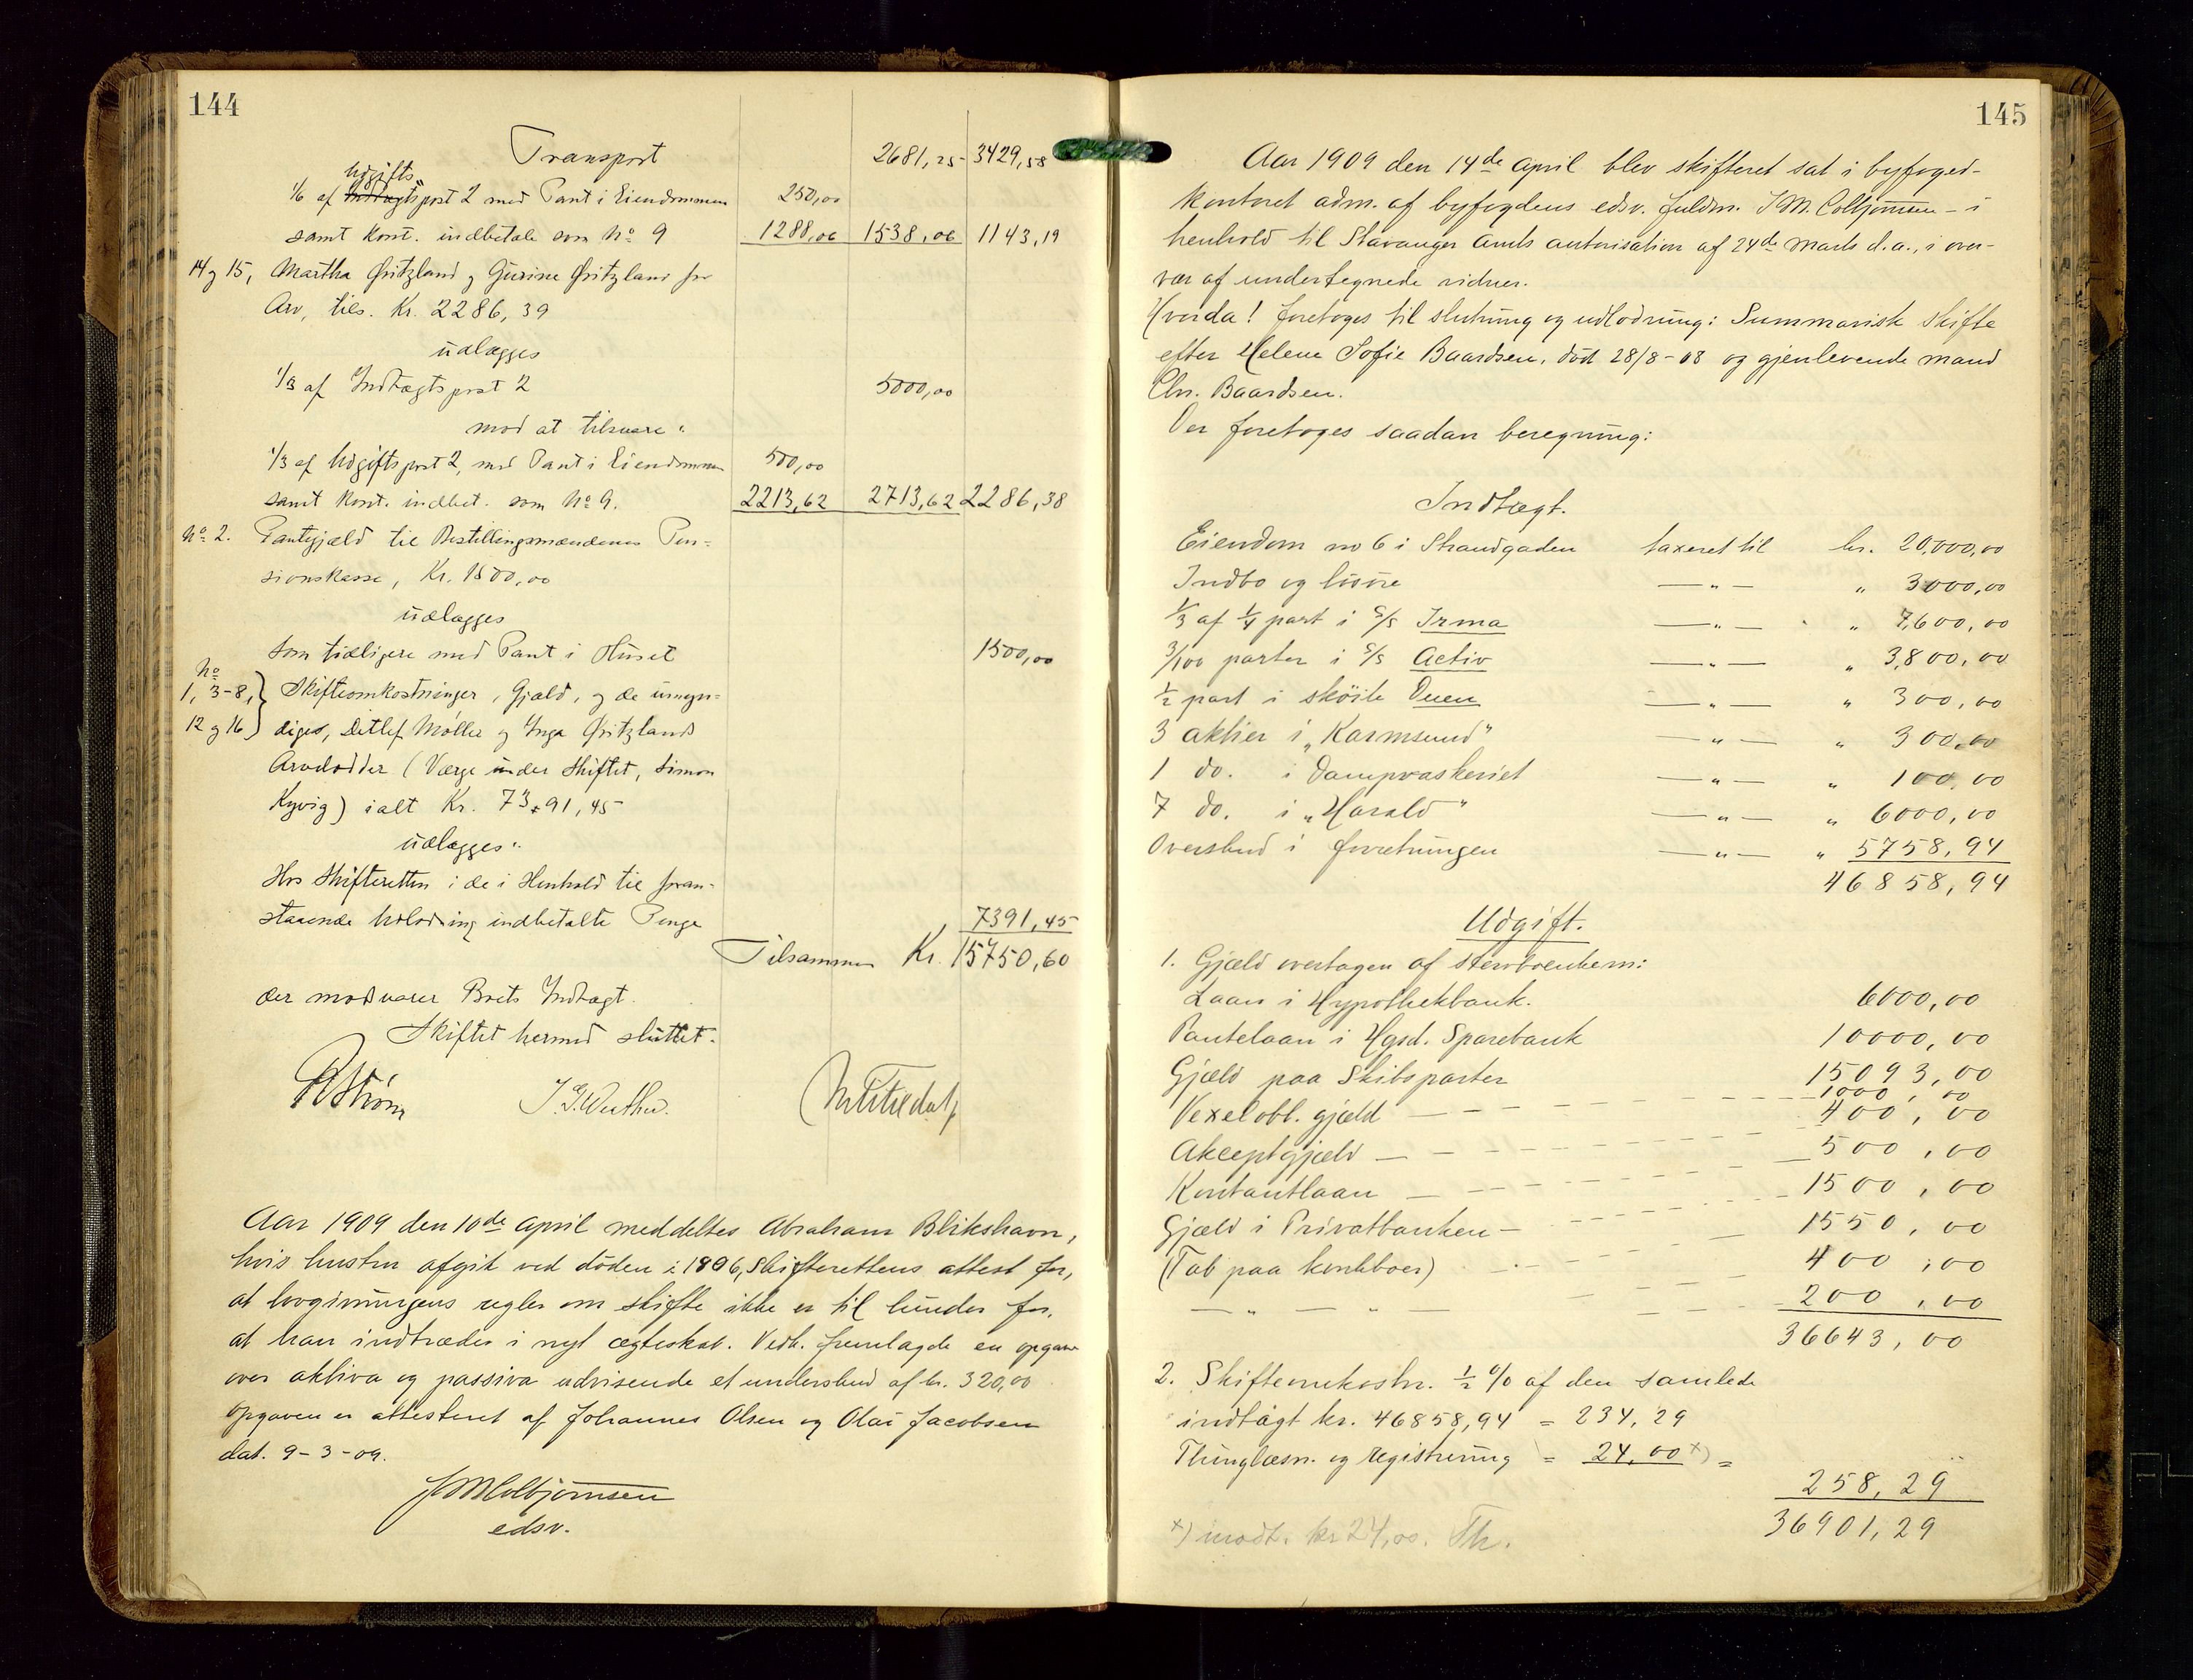 144
Transport 2681,25 3429,58
Udgifts
1/6 af Indtægtspost 2 med Pant i Eiendommen 250,00
samt kont. indbetale som No 9 1288,06 1538,06 1143,19
14 og 15, Martha Gritzland og Gurine Gritzland for
Arv, tils. Kr. 2286,39
udlægges
1/3 af Indtægtspost 2 5000,00
mod at tilsvare:
1/3 af Udgiftspost 2, med Pant i Eiendommen 500,00
samt kont. indbet. som No 9. 2213,62 2713,62 2286,38
No 2. Pantegjæld til Bestillingsmændenes Pen-
sionskasse, Kr. 1500,00
udlægges
som tidligere med Pant i Huset 1500,00
No
1, 3-8, Skifteomkostninger, Gjæld, og de umyn-
12 og 16 diges, Ditlef Møller og Inga Gritzlands
Arvelodder (Værge under Skiftet, Simon
Kyvig) ialt Kr. 7391,45
udlægges:
Hos Skifteretten i de i Henhold til foran-
staaende Udlodning indbetalte Penge 7391,45
Tilsammen Kr. 15750,60
der modsvarer Boets Indtægt.
Skiftet hermed sluttet.
J. G. Wuthu.
Aar 1909 den 10de april meddeltes Abraham Blikshavn,
hvis hustru afgik ved døden i 1906, Skifterettens attest for,
at lovgivningens regler om skifte ikke er til hinder for,
at han indtræder i nyt ægteskab. Vedk. fremlagde en opgave
over aktiva og passiva udvisende et underskud af kr. 320,00
Opgaven er attesteret af Johannes Olsen og Olai Jacobsen
dat. 9-3-09.
J M Colbjørnsen
edsv.
145
Aar 1909 den 14de april blev skifteret sat i byfoged-
kontoret adm. af byfogdens edsv. fuldm. J M. Colbjørnsen - i
henhold til Stavanger Amts autorisation af 24de marts d.a., i over-
vær af undertegnede vidner.
Hvorda! foretoges til slutning og udlodning: Summarisk skifte
efter Helene Sofie Baardsen, død 28/8-08 og gjenlevende mand
Chr. Baardsen.
Der foretoges saadan beregning:
Indtægt.
Eiendom no 6 i Strandgaden taxeret til kr. 20,000,00
Indbo og løsøre — " — " 3000,00
1/3 af 1/4 part i S/S Irma — " — " 7,600,00
3/100 parter i S/S Activ — " — " 3,800,00
1/2 part i skøite Duen — " — " 300,00
3 aktier i „Karmsund" — " — " 300,00
1 do. i Dampvaskeriet — " — " 100,00
7 do. i „Harald" — " — " 6000,00
Overskud i forretningen — " — " 5758,94
46858,94
Udgift.
1. Gjæld overtagen af stervboenkem:
Laan i Hypothekbank. 6000,00
Pantelaan i Hgsd. Sparebank 10000,00
Gjæld paa Skibsparter 15093,00
1000,00
Vexelobl. gjæld 400,00
Akceptgjæld 500,00
Kontantlaan 1500,00
Gjæld i Privatbanken 1550,00
(Tab paa konkboer) 400,00
— " — " — 200,00
36643,00
2. Skifteomkostn. 1/2 % af den samlede
indtægt kr. 46858,94 = 234,29
Thinglæsn. og registrering = 24,00 x) =
258,29
36901,29
x) modt. kr 24,00. Th.